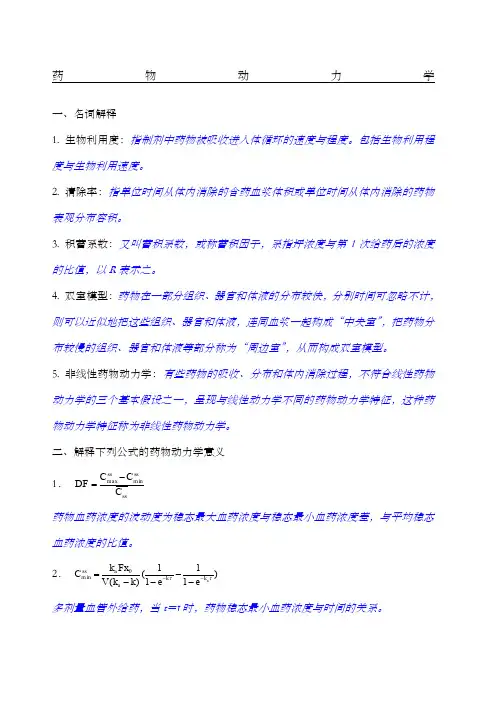 药物动力学
一、名词解释
1. 生物利用度：指制剂中药物被吸收进入体循环的速度与程度。包括生物利用程
度与生物利用速度。
2. 清除率：指单位时间从体内消除的含药血浆体积或单位时间从体内消除的药物
表观分布容积。
3. 积蓄系数：又叫蓄积系数，或称蓄积因子，系指坪浓度与第 1 次给药后的浓度
的比值，以 R 表示之。
4. 双室模型：药物在一部分组织、器官和体液的分布较快，分别时间可忽略不计，
则可以近似地把这些组织、器官和体液，连同血浆一起构成“中央室”，把药物分
布较慢的组织、器官和体液等部分称为“周边室”，从而构成双室模型。
5. 非线性药物动力学：有些药物的吸收、分布和体内消除过程，不符合线性药物
动力学的三个基本假设之一，呈现与线性动力学不同的药物动力学特征，这种药
物动力学特征称为非线性药物动力学。
二、解释下列公式的药物动力学意义
1． DF = (C^{ss}_{max} − C^{ss}_{min}) / C̅_{ss}
药物血药浓度的波动度为稳态最大血药浓度与稳态最小血药浓度差，与平均稳态
血药浓度的比值。
2． C^{ss}_{min} = k_a Fx_0 / V(k_a − k) (1 / (1 − e^{−kτ}) − 1 / (1 − e^{−k_a τ}))
多剂量血管外给药，当 τ＝t 时，药物稳态最小血药浓度与时间的关系。